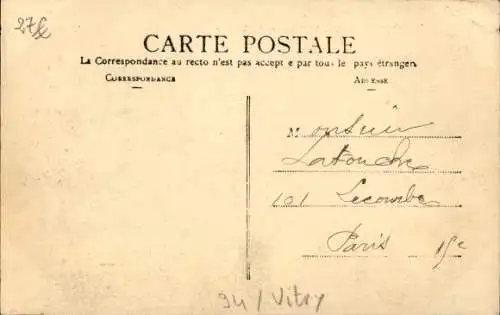 27€
CARTE POSTALE
La Correspondance au recto n'est pas accept e par tous le pays étrangers
CORRESPONDANCE
AD ESSE
Monsieur
Latouche
101 Lecourbe
Paris 15e
94 / Vitry